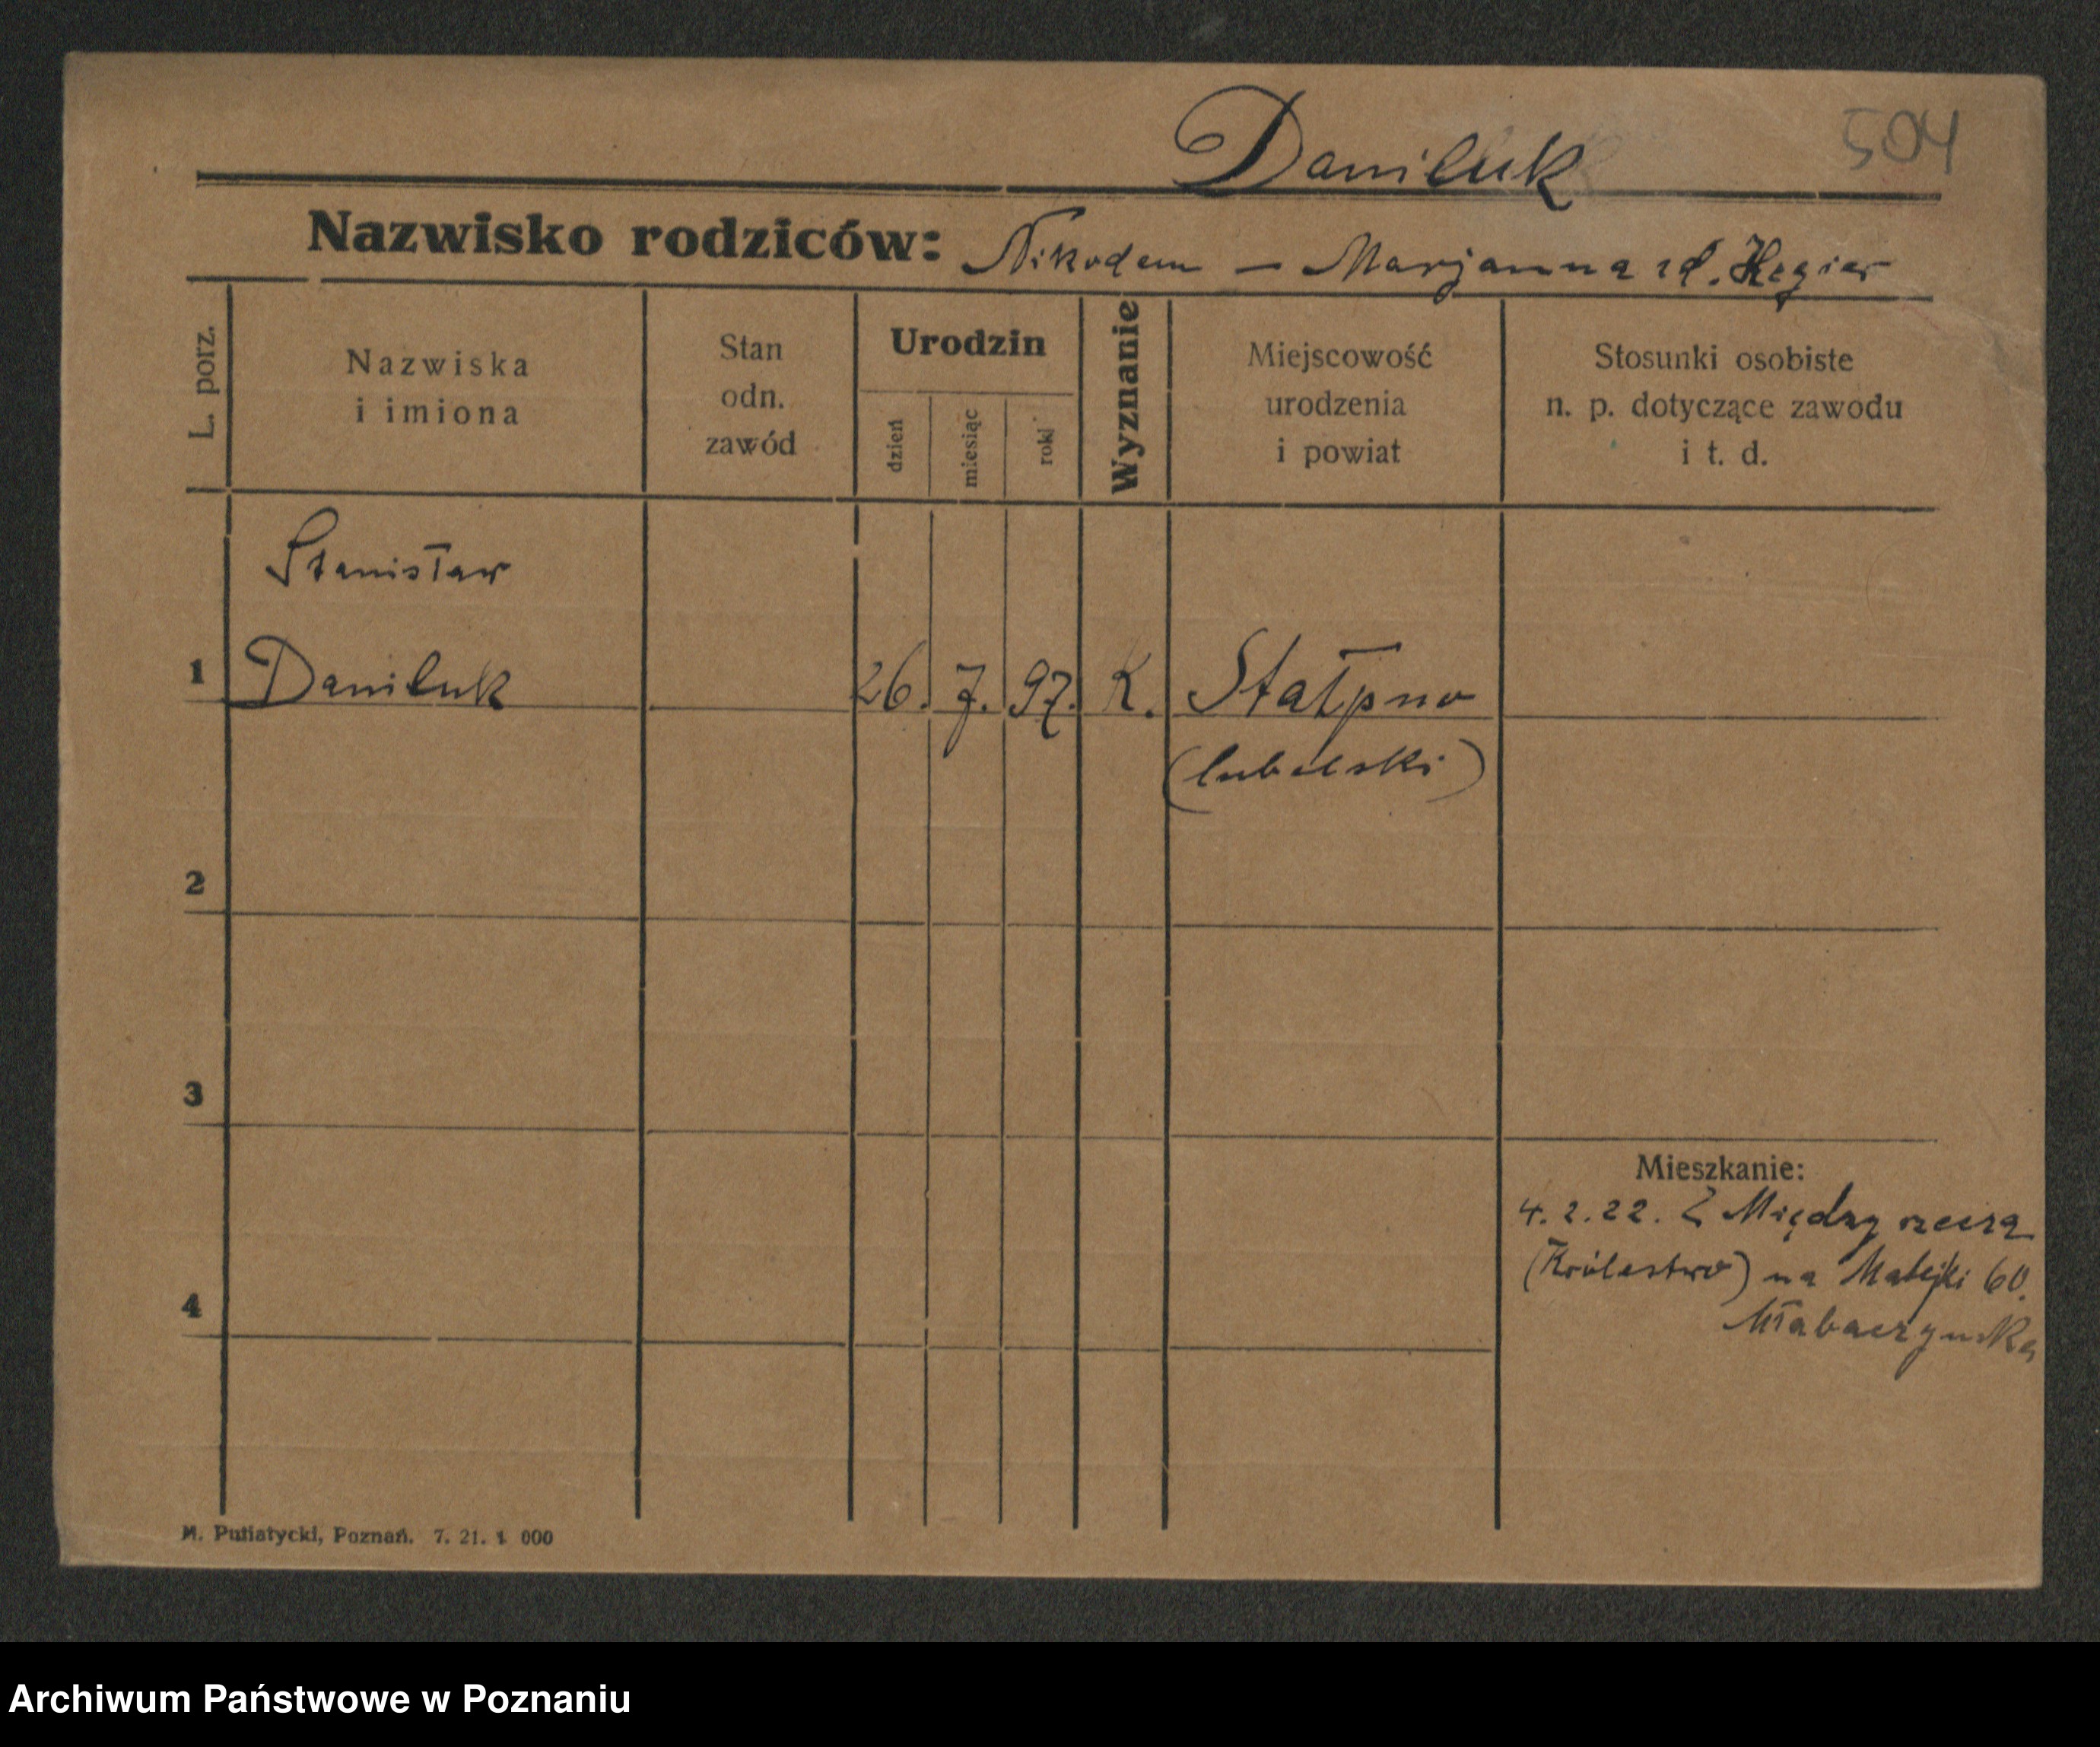 Daniluk
504
Nazwisko rodziców: Nikodem – Marjanna zd. Hegier
L. porz.
Nazwiska
i imiona
Stan
odn.
zawód
Urodzin
dzień
miesiąc
rok
Wyznanie
Miejscowość
urodzenia
i powiat
Stosunki osobiste
n. p. dotyczące zawodu
i t. d.
Stanisław
1 Daniluk 26. 7. 97. K. Stałpno
(lubelski)
2
3
Mieszkanie:
4.2.22. Z Międzyrzecza
(Królestwo) na Matejki 60.
4
M. Putiatycki, Poznań. 7. 21. 1 000
Archiwum Państwowe w Poznaniu